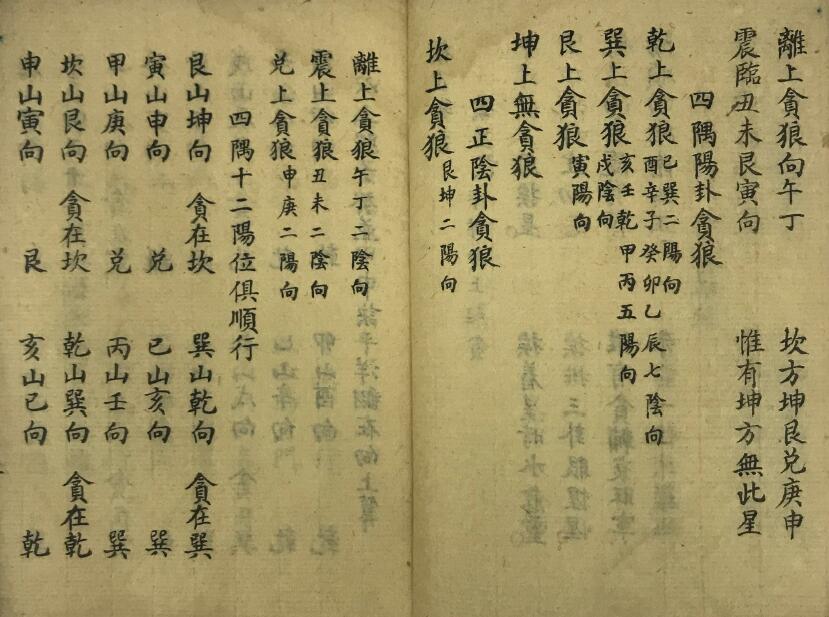 離上貪狼向午丁　坎方坤艮兑庚申
震臨丑未艮寅向　惟有坤方無此星
四隅陽卦貪狼
乾上貪狼
已巽二陽向
酉辛子癸卯乙辰七陰向
巽上貪狼
亥壬乾甲丙五陽向
戌陰向
艮上貪狼寅陽向
坤上無貪狼
四正陰卦貪狼
坎上貪狼艮坤二陽向
離上貪狼午丁二陰向
震上貪狼丑未二陰向
兑上貪狼申庚二陽向
四隅十二陽位俱順行
艮山坤向　貪在坎　巽山乾向　貪在巽
寅山申向　兑　已山亥向　巽
甲山庚向　兑　丙山壬向　巽
坎山艮向　貪在坎　乾山巽向　貪在乾
申山寅向　艮　亥山已向　乾